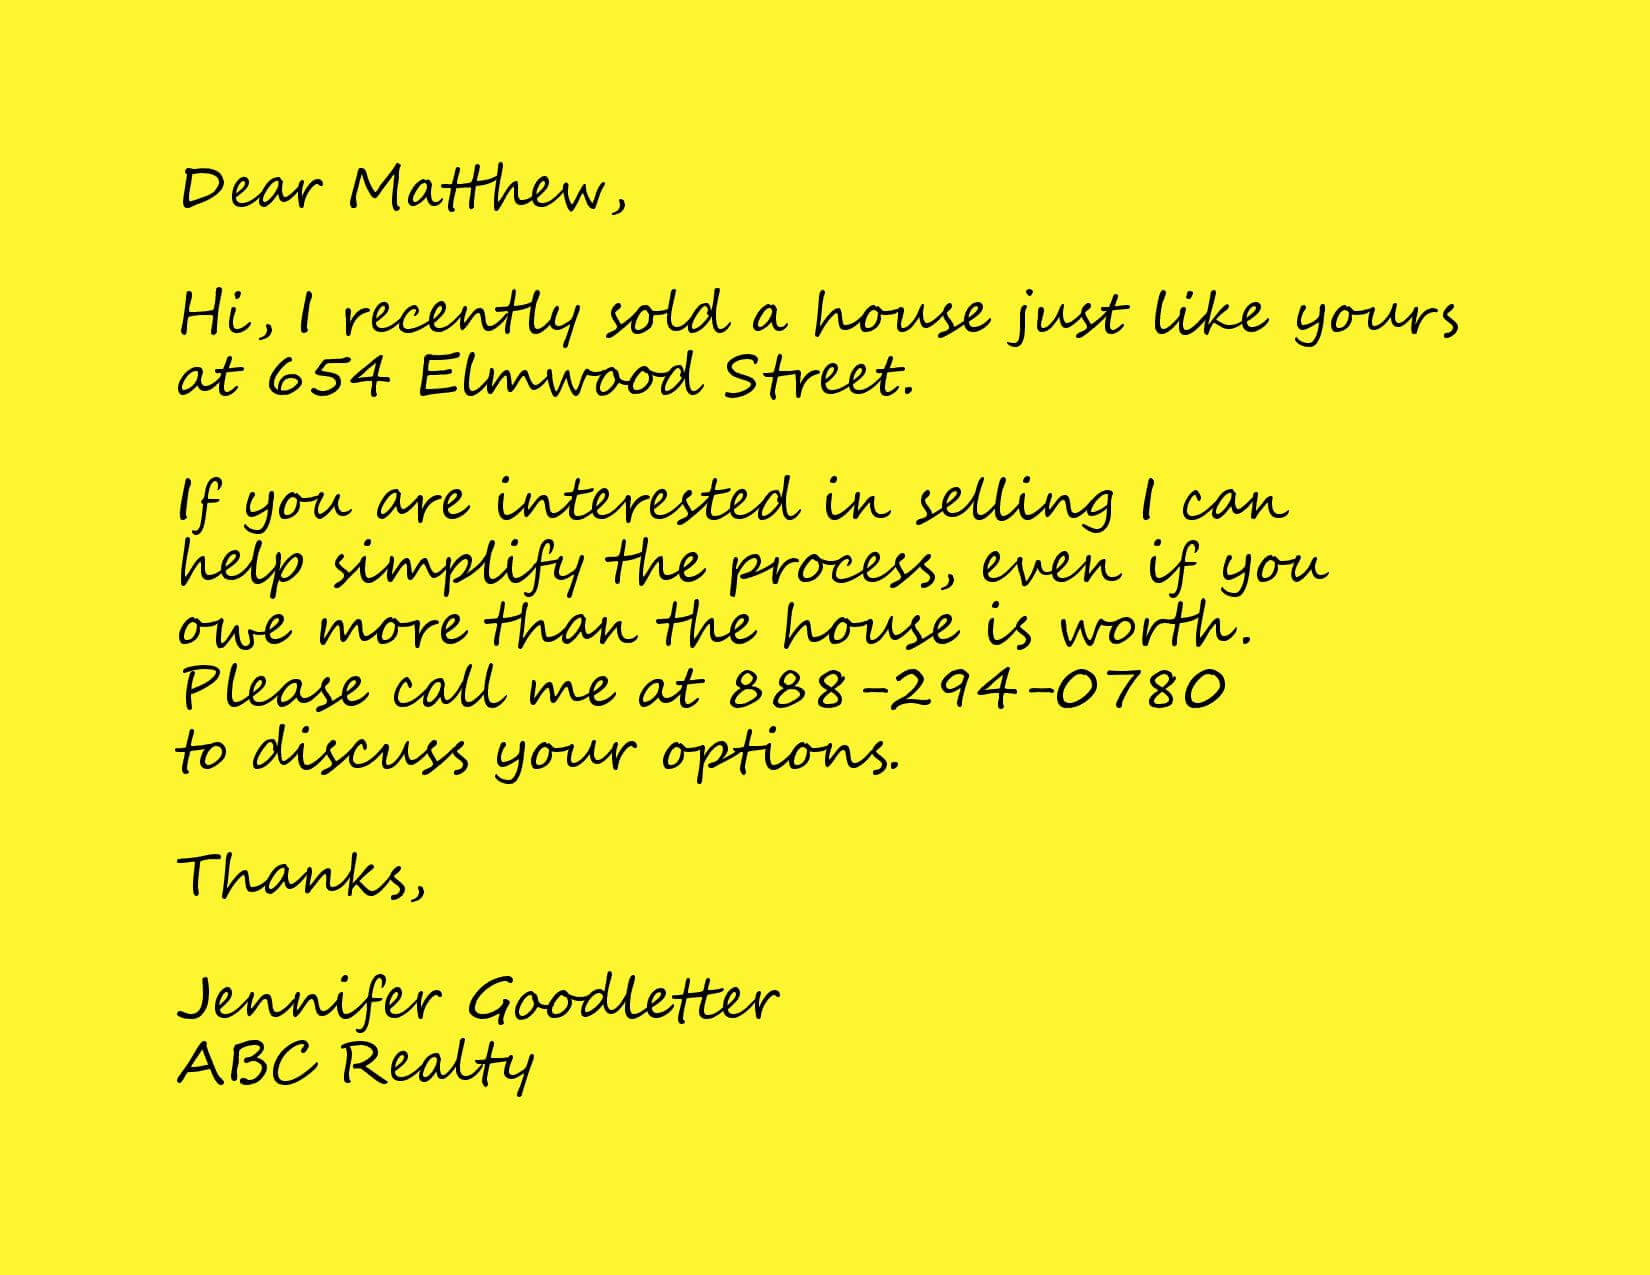 Dear Matthew,
Hi, I recently sold a house just like yours
at 654 Elmwood Street.
If you are interested in selling I can
help simplify the process, even if you
owe more than the house is worth.
Please call me at 888-294-0780
to discuss your options.
Thanks,
Jennifer Goodletter
ABC Realty